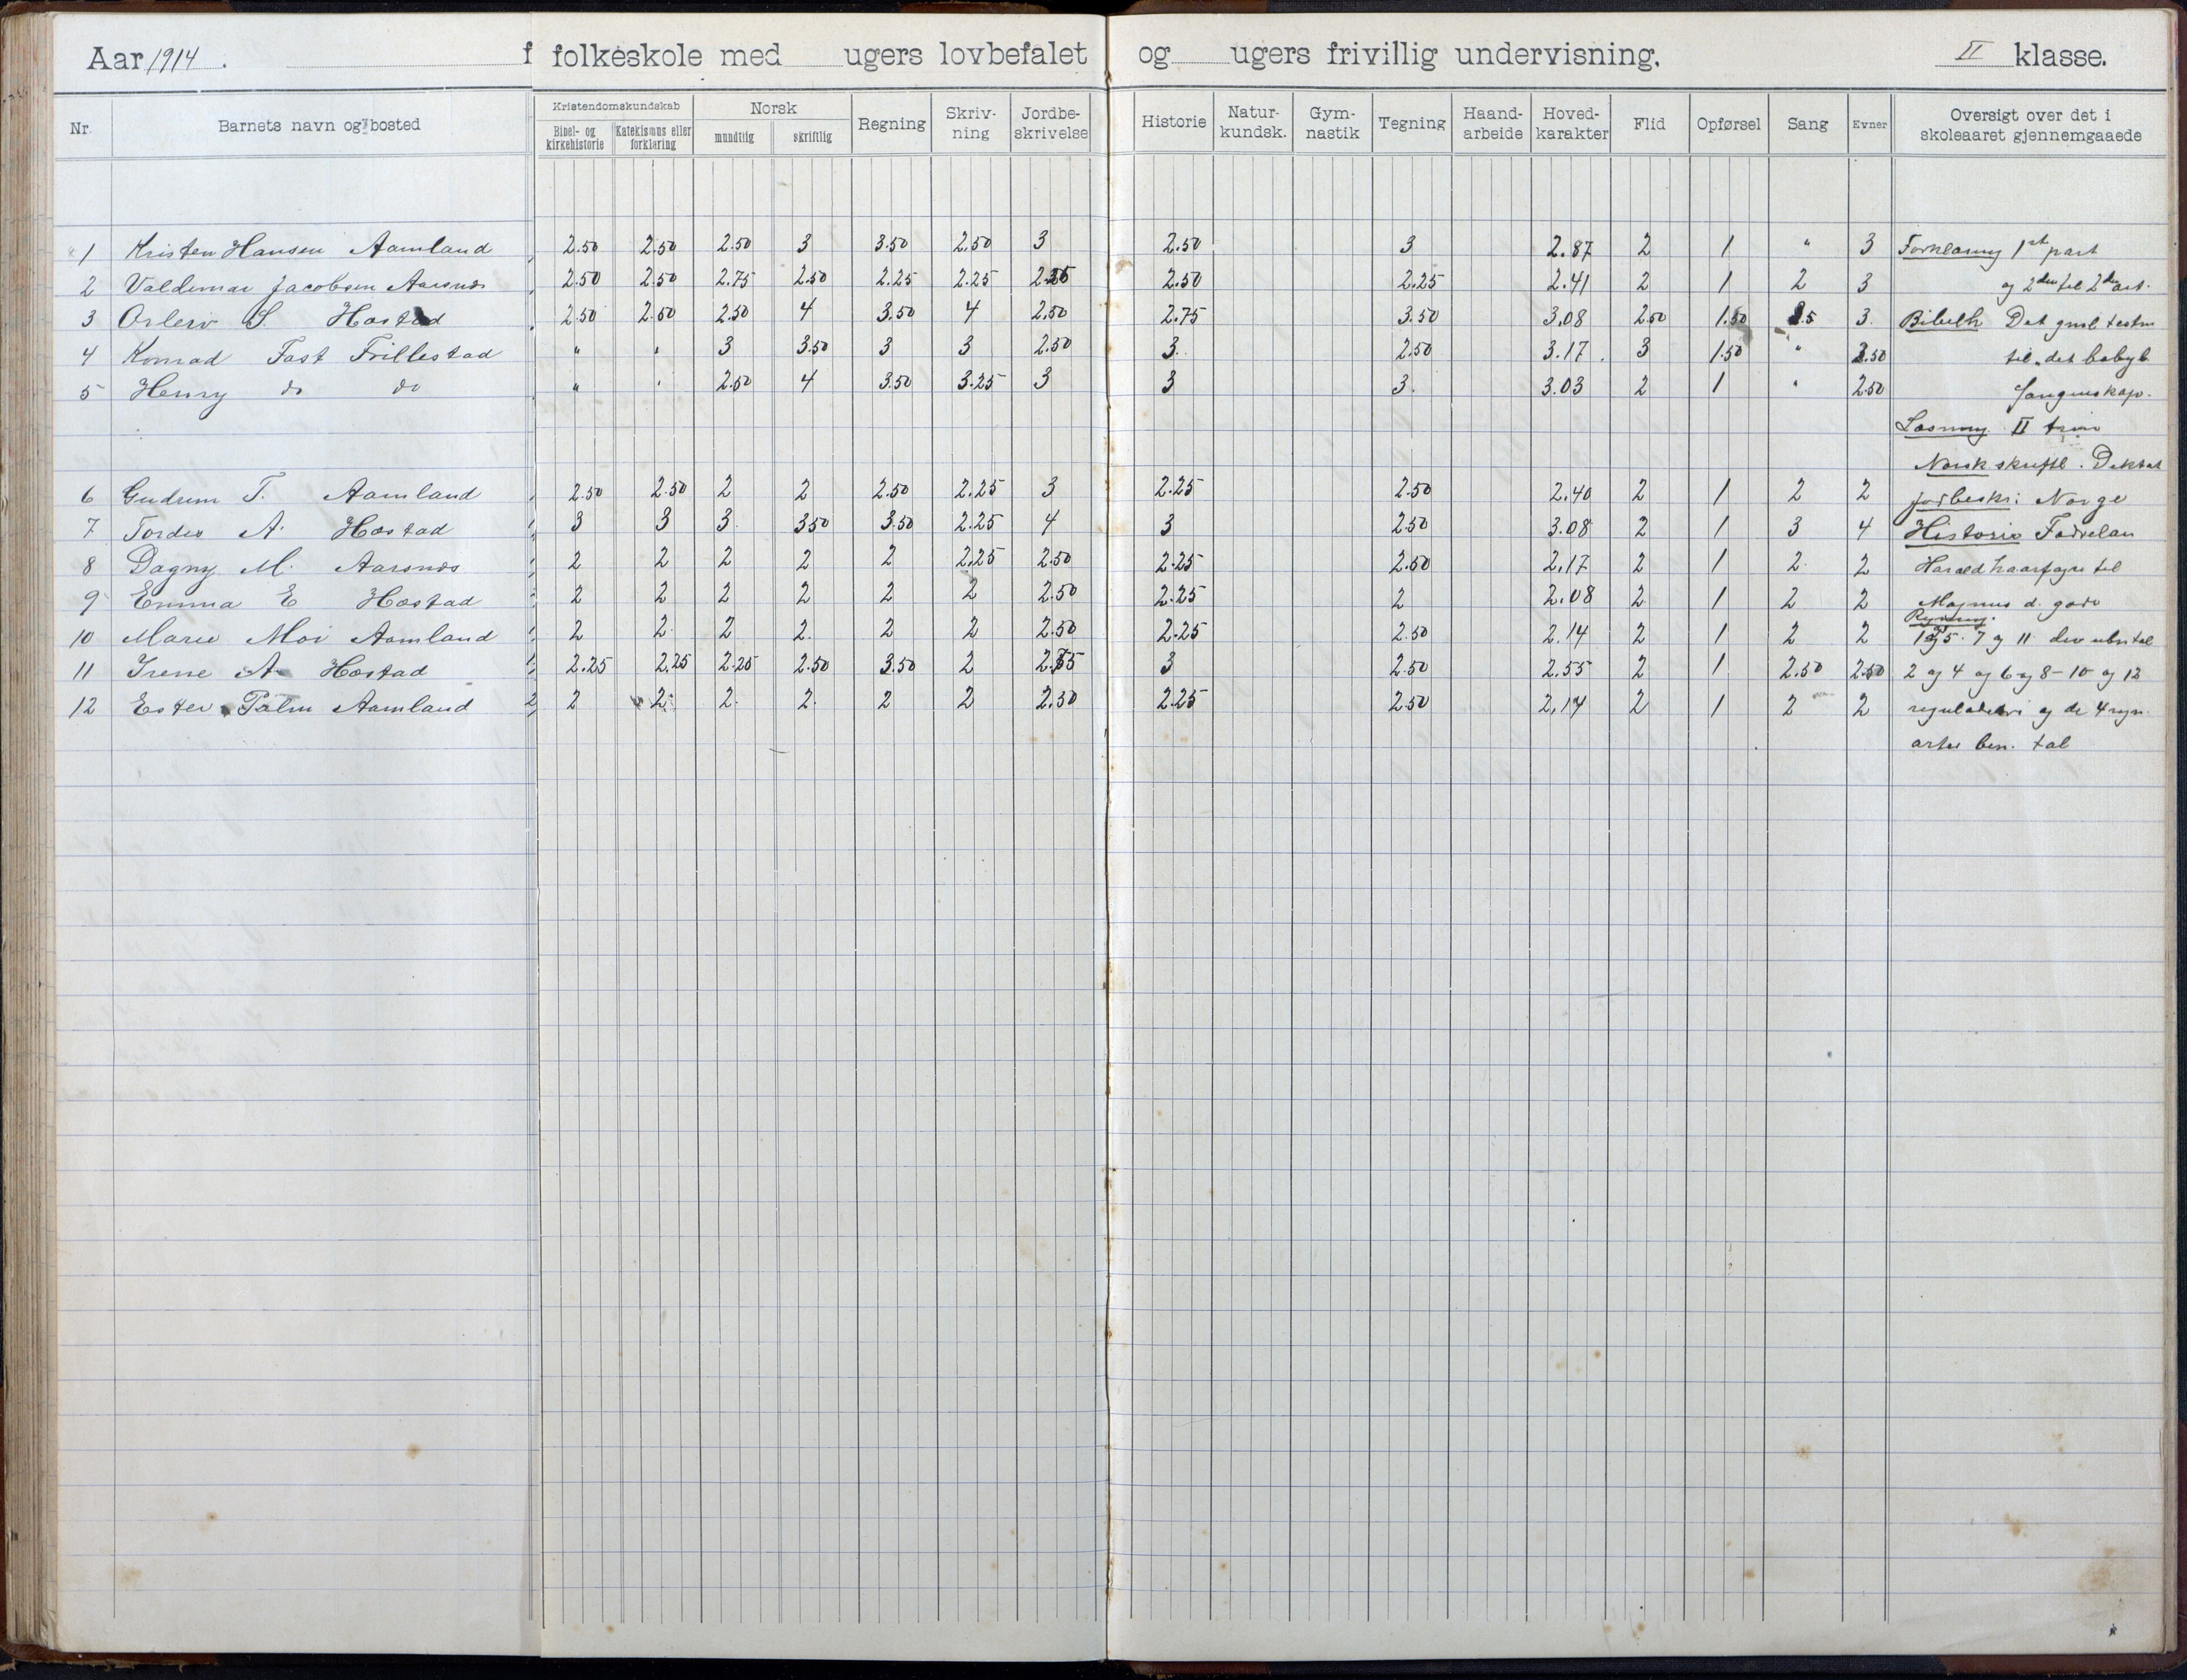 Aar 1914. f folkeskole med ugers lovbefalet og ugers frivillig undervisning. II klasse.
Nr. Barnets navn og bosted Kristendomskundskab Bibel- og kirkehistorie Katekismus eller forklaring Norsk mundtlig skriftlig Regning Skriv-ning Jordbe-skrivelse Historie Natur-kundsk. Gym-nastik Tegning Haand-arbeide Hoved-karakter Flid Opførsel Sang Evner Oversigt over det i skoleaaret gjennemgaaede
1 Kristen Hansen Aamland 2.50 2.50 2.50 3 3.50 2.50 3 2.50 3 2.87 2 1 " 3 Forklaring 1st part
2 Valdemar Jacobsen Aarsnes 2.50 2.50 2.75 2.50 2.25 2.25 2.50 2.25 2.41 2 1 2 3 og 2den til 2d art.
3 S. Hæstad 2.50 2.50 2.50 4 3.50 4 2.50 2.75 3.50 3.08 2.50 1.50 3. Bibelh Det gml. testm
4 Konrad Fast Frillestad " " 3 3.50 3 3 2.50 3. 2.50 3.17. 3 1.50 " til det babyl
5 Henry do do " " 2.50 4 3.50 3.25 3 3 3. 3.03 2 1 " 2.50 fangenskap.
Læsning II trin
Norsk skriftl. Diktat
6 Gudrun T. Aamland 2.50 2.50 2 2 2.50 2.25 3 2.25 2.50 2.40 2 1 2 2 Jordbeskr: Norge
7 Tordis A. Hæstad 3 3 3. 3.50 3.50 2.25 4 3 2.50 3.08 2 1 3 4 Historie Fædrelan
8 Dagny M. Aarsnes 2 2 2 2 2 2.25 2.50 2.25 2.50 2.17 2 1 2. 2 Harald haarfagre til
9 Emma E Hæstad 2 2 2 2 2 2 2.50 2.25 2 2.08 2 1 2 2 Magnus d. gode
Regning.
10 Marie Moi Aamland 2 2. 2 2. 2 2 2.50 2.25 2.50 2.14 2 1 2 2 7 og 11 ubn tal
11 Irene A. Hæstad 2.25 2.25 2.25 2.50 3.50 2 2.75 3 2.50 2.55 2 1 2.50 2.50 2 og 4 og 6 og 8-10 og 12
12 Ester Palm Aamland 2 2 2. 2. 2 2 2.50 2.25 2.50 2.14 2 1 2 2 og de 4 regn.
arter ben. tal